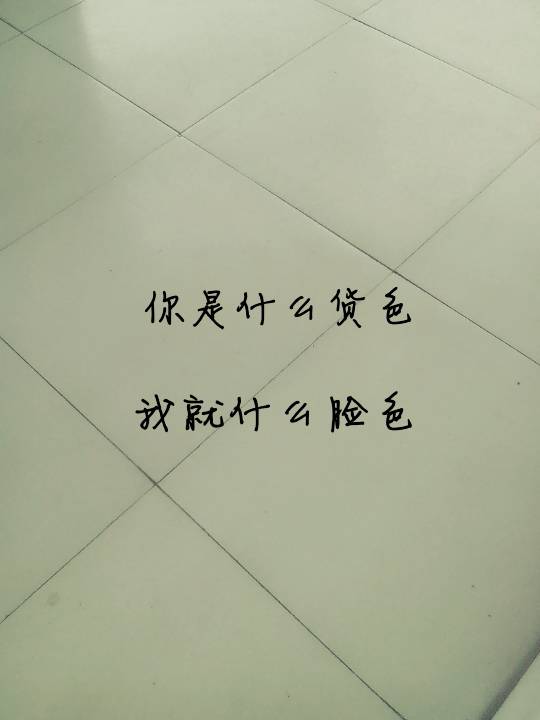 你是什么货色
我就什么脸色